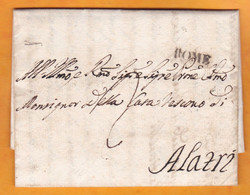 ROME
All'Illmo e Rmo Sigre Sigre Prone Colmo
Monsignor Della Casa Vescovo di
2
Alatri